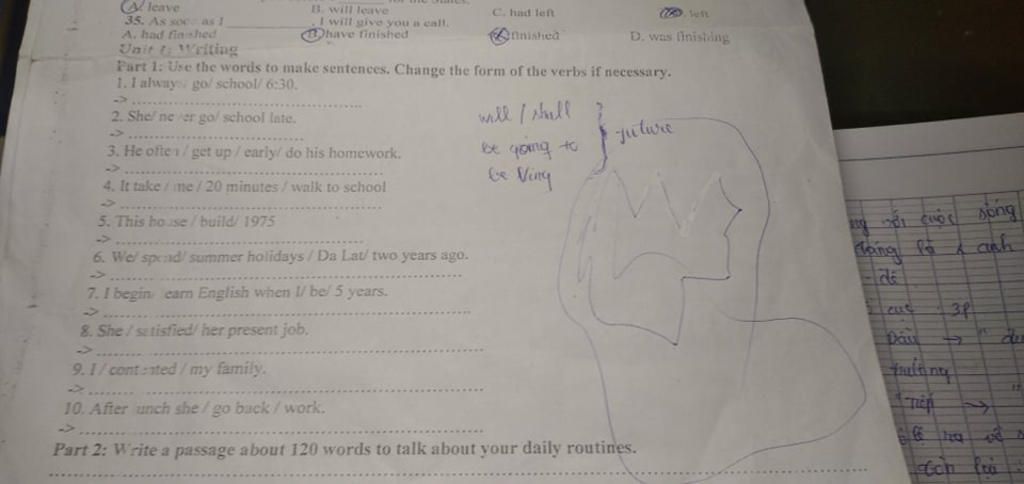 A. leave B. will leave C. had left D. left
35. As soon as I ____________, I will give you a call.
A. had finished B. have finished C. finished D. was finishing
Unit 1: Writing
Part 1: Use the words to make sentences. Change the form of the verbs if necessary.
1. I always/ go/ school/ 6:30.
->
2. She/ never go/ school late.
->
3. He often / get up / early/ do his homework.
->
4. It take / me / 20 minutes / walk to school
->
5. This house / build/ 1975
->
6. We/ spend/ summer holidays / Da Lat/ two years ago.
->
7. I begin/ learn English when I/ be/ 5 years.
->
8. She / satisfied/ her present job.
->
9. I / contented / my family.
->
10. After lunch she / go back / work.
->
Part 2: Write a passage about 120 words to talk about your daily routines.
will / shall
be going to
be Ving
future
cuộc sống
là anh
đề
3P
→ "
trường
"Tiếp →